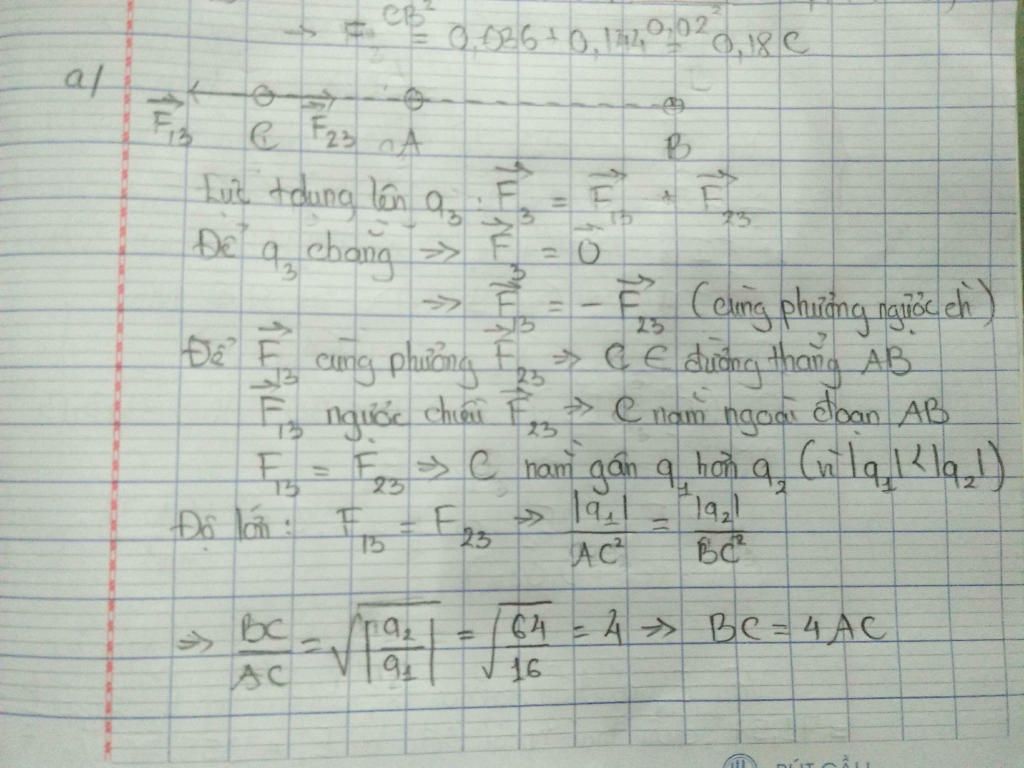 CB² 0,02²
→ F = 0,036 + 0,144 = 0,18 C
a/
F₁₃ C F₂₃ A B
Lực tdụng lên q₃: F⃗₃ = F⃗₁₃ + F⃗₂₃
Để q₃ cbằng ⇒ F⃗₃ = 0⃗
⇒ F⃗₁₃ = - F⃗₂₃ (cùng phương ngược ch)
Để F⃗₁₃ cùng phương F⃗₂₃ ⇒ C ∈ đường thẳng AB
F⃗₁₃ ngược chiều F⃗₂₃ ⇒ C nằm ngoài đoạn AB
F₁₃ = F₂₃ ⇒ C nằm gần q₁ hơn q₂ (vì |q₁| < |q₂|)
Độ lớn: F₁₃ = F₂₃ ⇒ |q₁|/AC² = |q₂|/BC²
⇒ BC/AC = √|q₂/q₁| = √64/16 = 4 ⇒ BC = 4 AC
BÚT CẦU